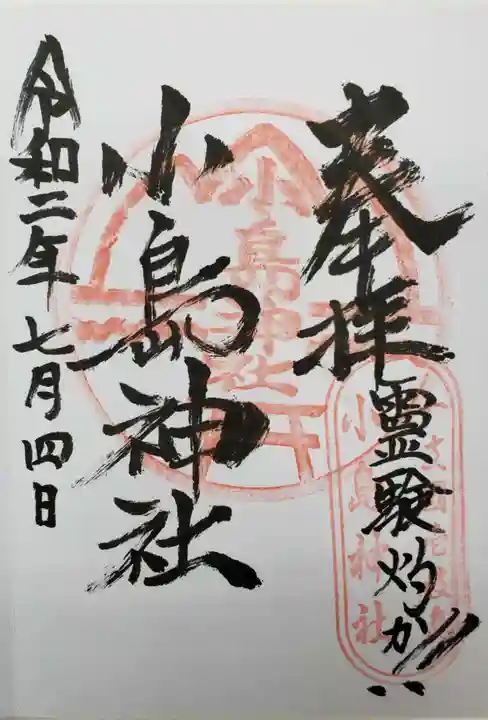 奉拝
霊験灼か!!
小島神社
令和二年七月四日
小島神社
小島神社